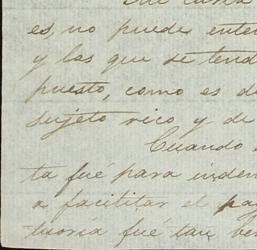 es no puede enten
y las que se tend
puesto, como es de
sujeto rico y de
Cuando
ta fué para indem
a facilitar el pag
fué tan ver